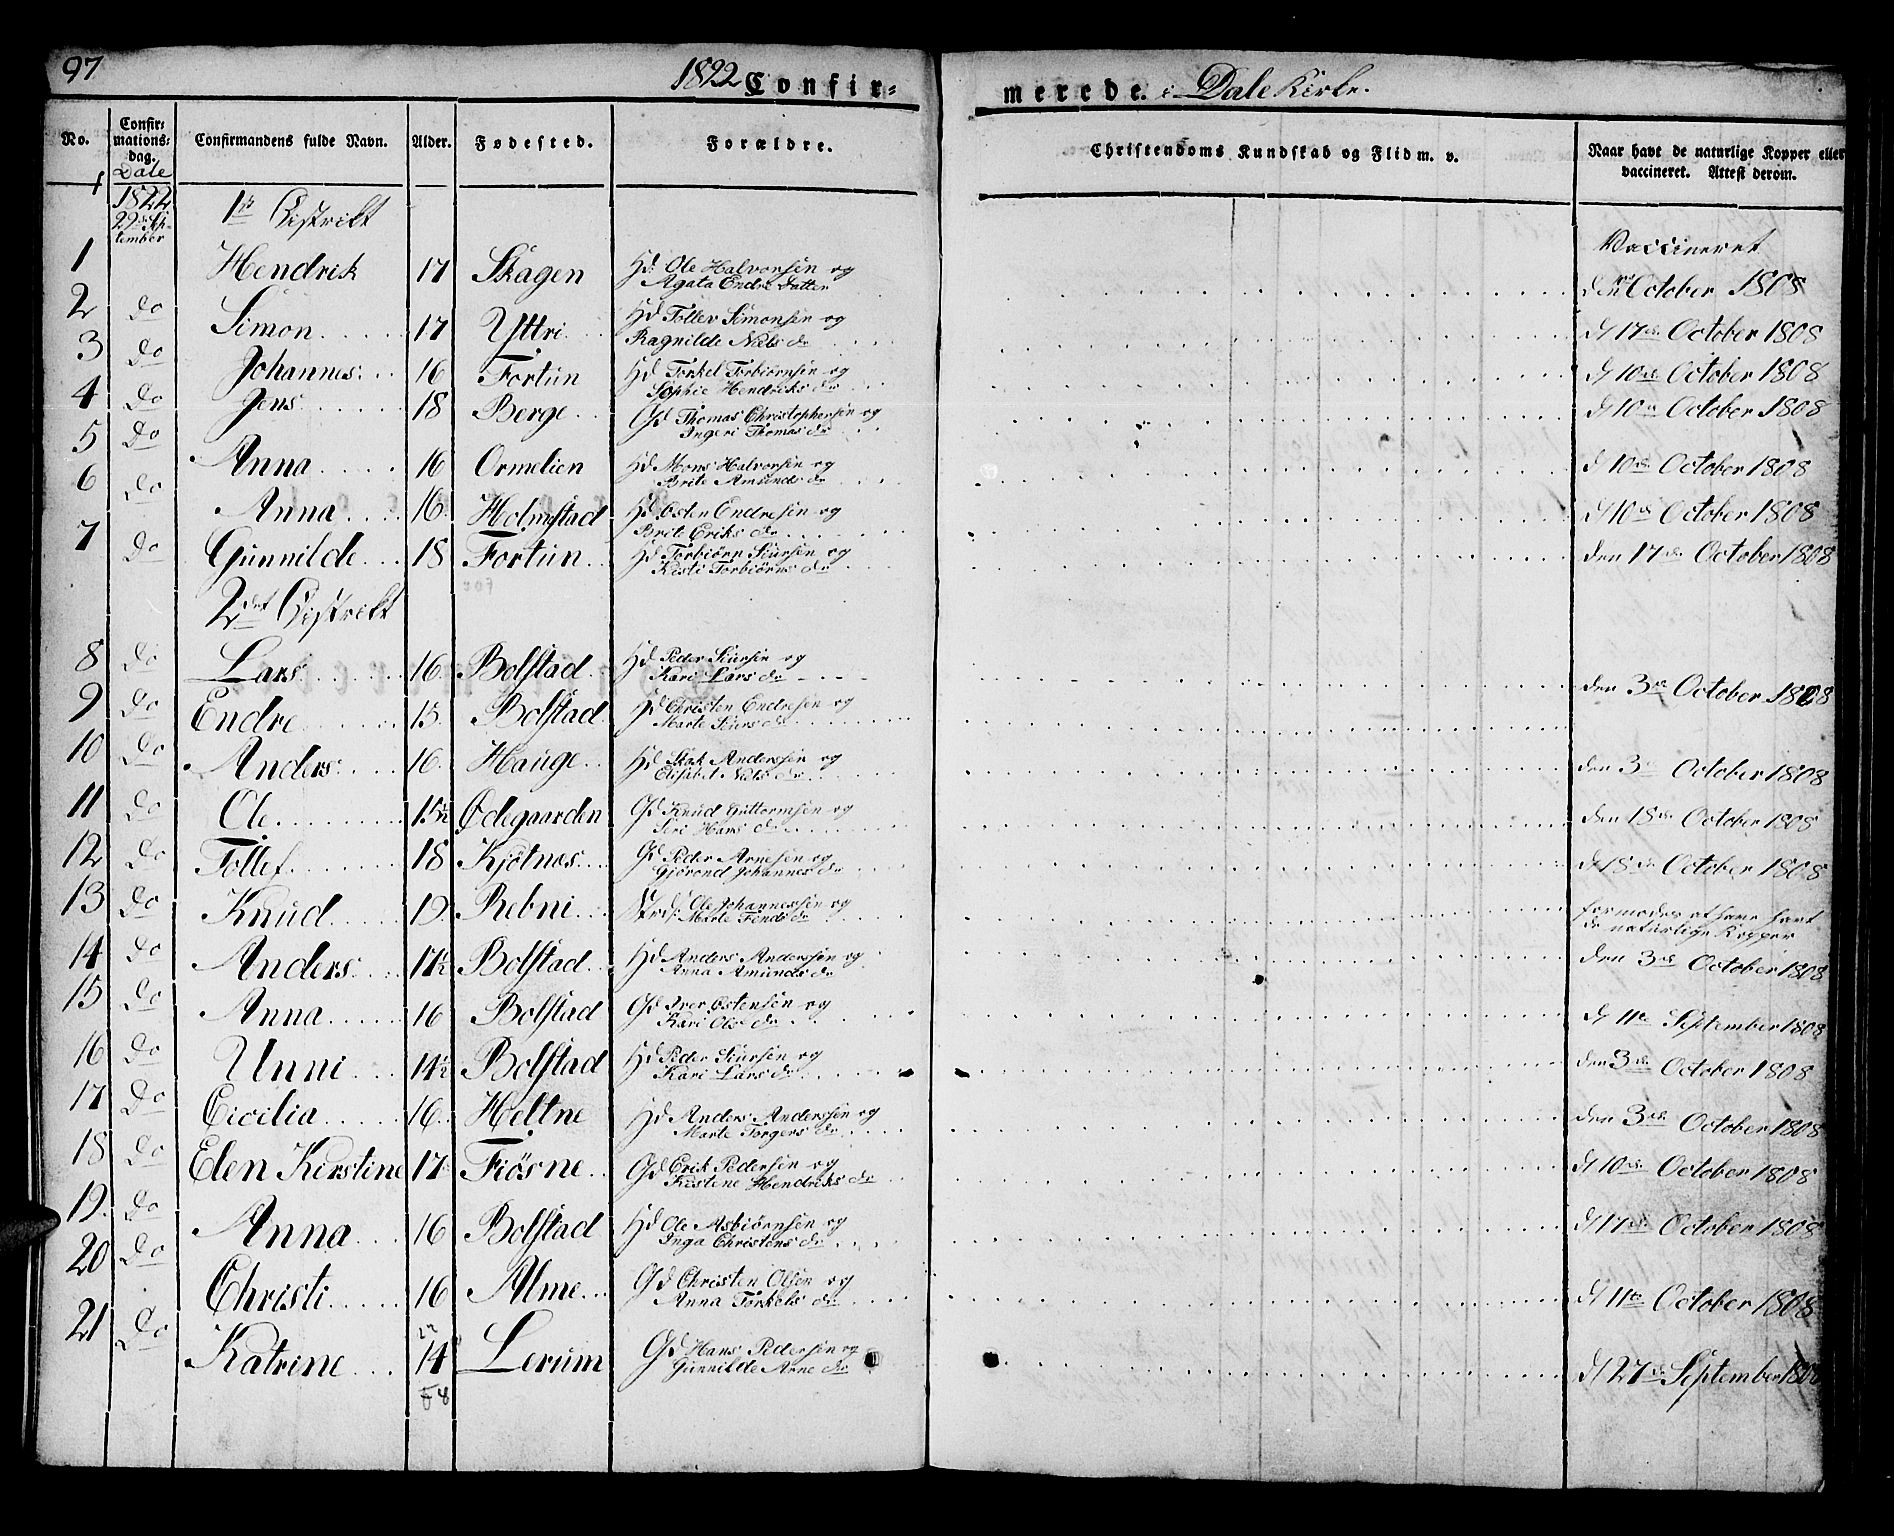 97
1822 Confir=
merede. i Dale Kirke.
No.
Confir=
mations=
dag.
Confirmandens fulde Navn.
Alder.
Fødested.
Forældre.
Christendoms Kundskab og Flid m. v.
Naar havt de naturlige Kopper eller
vaccineret. Attest derom.
Dale
1822
29de Sep-
tember
1st Distrikt
Vaccineret
1 Hendrik 17 Skagen Hd: Ole Halvorsen og
Agata Endre Datter
den October 1808
2 Do Simon 17 Yttri Hd Tollev Simonsen og
Ragnilde Niels dr
d 17de October 1808
3 Do Johannes 16 Fortun Hd Torkel Torbiørnsen og
Sophie Hendriks dr
d 10de October 1808
4 Do Jens 18 Berge Gd Thomas Christophersen og
Ingeri Thomas dr
d 10de October 1808
5 Do Anna 16 Ormelien Hd Mons Halvorsen og
Brite Amunds dr
d 10de October 1808
6 Do Anna 16 Holmstad Hd Østen Endresen og
Brite Eriks dr
d 10de October 1808
7 Do Gunnilde 18 Fortun Hd Torbiørn Siursen og
Kisti Torbiørns dr
den 17de October 1808
2det Distrikt
8 Do Lars 16 Bolstad Hd Peder Siursen og
Kari Lars dr
den 3de October 1808
9 Do Endre 15 Bolstad Hd Christen Endresen og
Marte Siurs dr
10 Do Anders 16 Hauge Hd Anderssen og
Elisabet Niels dr
den 3de October 1808
11 Do Ole 15½ Ødegaarden Gd Knud Guttormsen og
Seri Hans dr
den 18de October 1808
12 Do Tollef 18 Kjøtnæs Gd Peder Arnesen og
Gjørond Johannes dr
d 18de October 1808
13 Do Knud 19 Rebni Ole Johannessen og
Marte dr
formodes at have havt
de naturlige Kopper
14 Do Anders 17½ Bolstad Hd Anders Anderssen og
Anna Amunds dr
den 3de October 1808
15 Do Anna 16 Bolstad Gd Iver Østensen og
Kari Ols dr
d 11te September 1808
16 Do Unni 14½ Bolstad Hd Peder Siursen og
Kari Lars dr
den 3de October 1808
17 Do Cicilia 16 Heltne Hd Anders Anderssen og
Marte Torgers dr
den 3de October 1808
18 Do Elen Kirstine 17 Fiøsne Gd Erik Pedersen og
Kistene Hendriks dr
d 10de October 1808
19. Do Anna 16 Bolstad Hd Ole Asbiørnsen og
Inga Christens dr
d 17de October 1808
20 Do Christi 16 Alme Gd Christen Olsen og
Anna Torkels dr
d 11te October 1808
21 Do Katrine 14 Lerum Gd Hans Pedersen og
Gunnilde Arne dr
d 27de September 1808